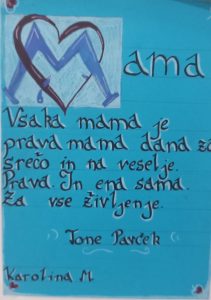 Mama
Vsaka mama je
prava mama dana za
srečo in na veselje.
Prava. In ena sama.
Za vse življenje.
Tone Pavček
Karolina M.